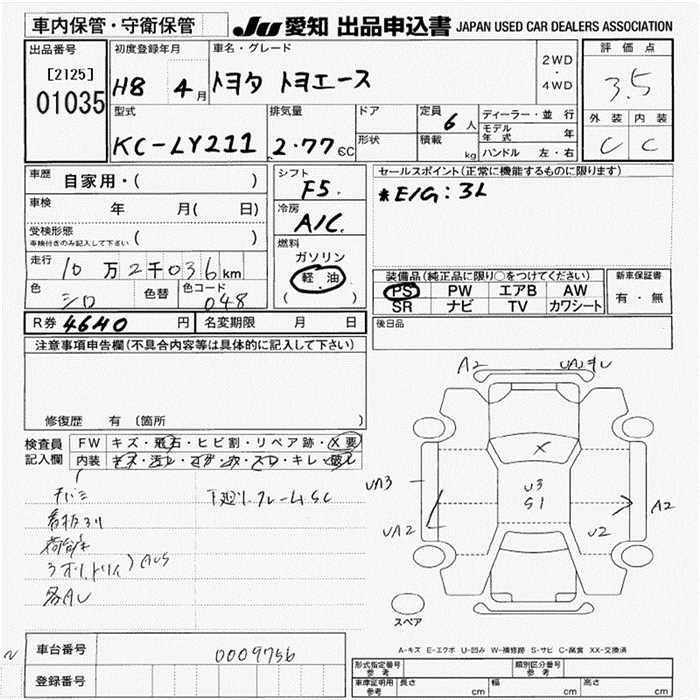 車内保管・守衛保管 JU 愛知 出品申込書 JAPAN USED CAR DEALERS ASSOCIATION
出品番号 初度登録年月 車名・グレード 2WD・4WD 評価点
[2125] 01035 H8 4月 トヨタ トヨエース 3.5
型式 排気量 ドア 定員 6人 ディーラー・並行 外装 内装
モデル年式 年
KC-LY211 2.77 CC 形状 積載 kg ハンドル 左・右 C C
車歴 自家用・( ) シフト F5. セールスポイント(正常に機能するものに限ります)
車検 年 月( 日) 冷房 A/C. *E/G:3L
受検形態 ( )
車検付きのみ記入して下さい
燃料
ガソリン
走行 10万2千036km 軽油 装備品(純正品に限り○をつけてください) 新車保証書
色 シロ 色替 色コード 048 ( ) PS PW エアB AW 有・無
SR ナビ TV カワシート
R券 4640円 名変期限 月 日 後日品
注意事項申告欄(不具合内容等は具体的に記入して下さい)
修復歴 有 (箇所 )
検査員記入欄 FW キズ・飛石・ヒビ割・リペア跡・X要
内装 キズ・汚レ・コゲ・穴・スレ・キレ・破レ
下廻リ フレームSC
A2
X
UA3 U3 S1 A2
UA2 U2
スペア
車台番号 0009756
登録番号
A-キズ E-エクボ U-凹み W-補修跡 S-サビ C-腐食 XX-交換済
形式指定番号 参考 類別区分番号 参考
車庫証明用 参考 長さ cm 幅 cm 高さ cm